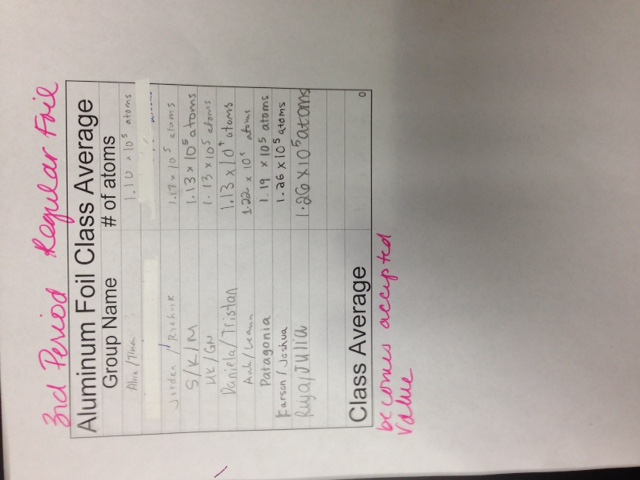 3rd Period Regular Foil
Aluminum Foil Class Average
Group Name # of atoms
Alex/Tina 1.10 x 10⁵ atoms
Jordan / 1.17 x 10⁵ atoms
S/K/M 1.13 x 10⁵ atoms
/GN 1.13 x 10⁵ atoms
Daniela/Tristan 1.13 x 10⁵ atoms
/Leann 1.22 x 10⁵ atoms
Patagonia 1.19 x 10⁵ atoms
Carson / Joshua 1.26 x 10⁵ atoms
Ruya/Julia 1.26 x 10⁵ atoms
Class Average 0
becomes accepted
value